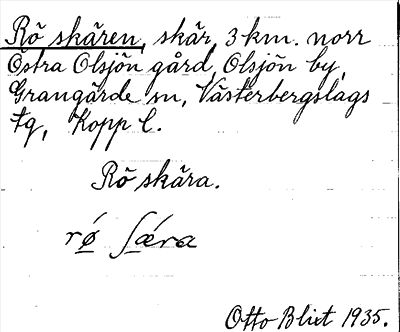 Rö skären, skär, 3 km. norr
Östra Olsjön gård, Olsjön by,
Grangärde sn, Västerbergslags
tg, Kopp l.
Rö skära.
rǿ ʃǽra
Otto Blixt 1935.